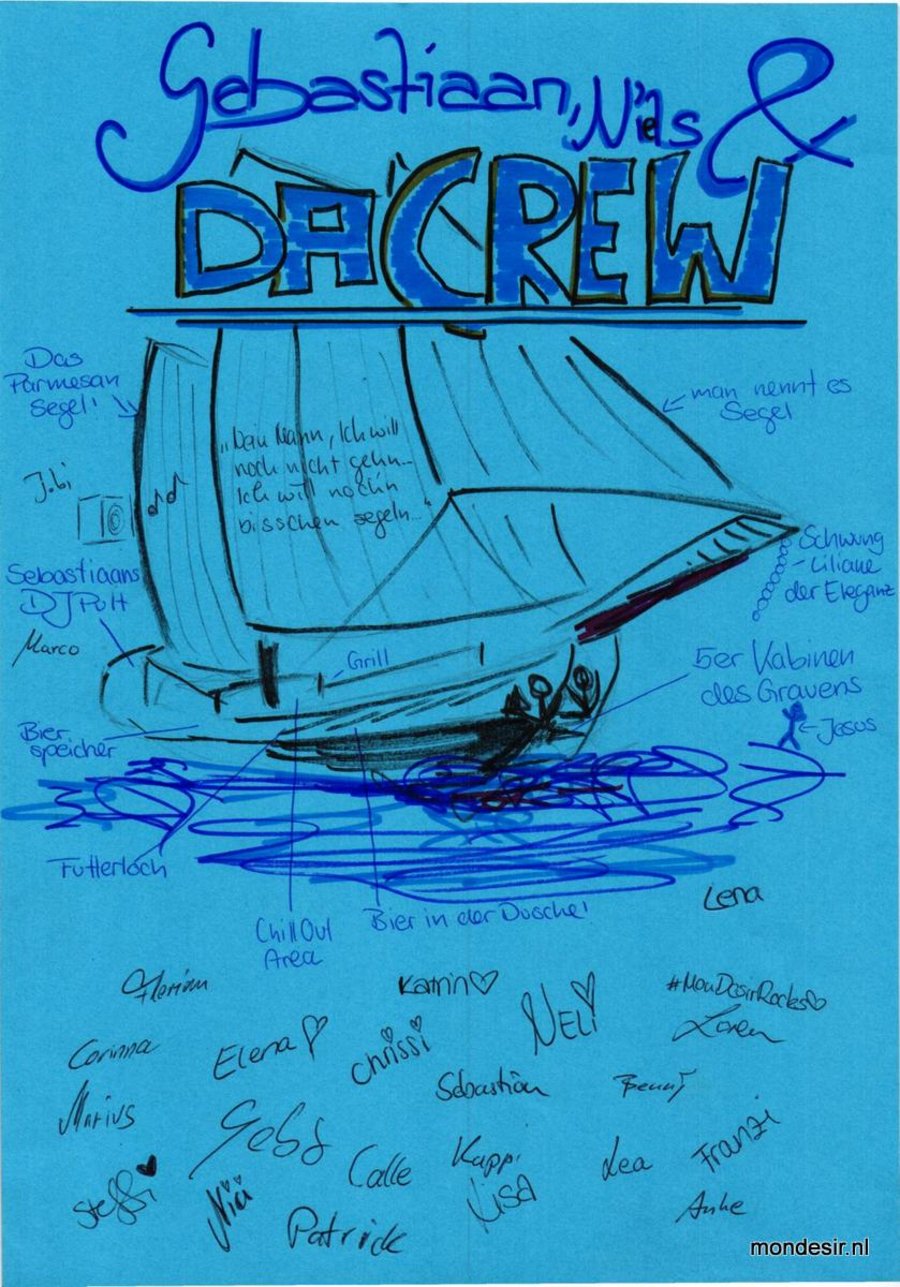 Sebastiaan, Niels &
DA CREW
Das
Parmesan
Segel!
man nennt es
Segel
noch nicht gehn...
Ich will noch'n
bisschen segeln..."
Sebastiaans
DJ Pult
Marco
Schwung
- Liliane
der Eleganz
Grill
5er Kabinen
des Grauens
Bier
speicher
← Jesus
Futterloch
Chill Out
Area
Bier in der Dusche!
Lena
Florian
Katrin♡
#MonDesirRocks♡
Corinna
Elena♡
Chrissi
Neli
Loren
Sebastian
Benny
Marius
Calle
Kappi
Lea
Franzi
Steffi
Patrick
Lisa
Anke
mondesir.nl